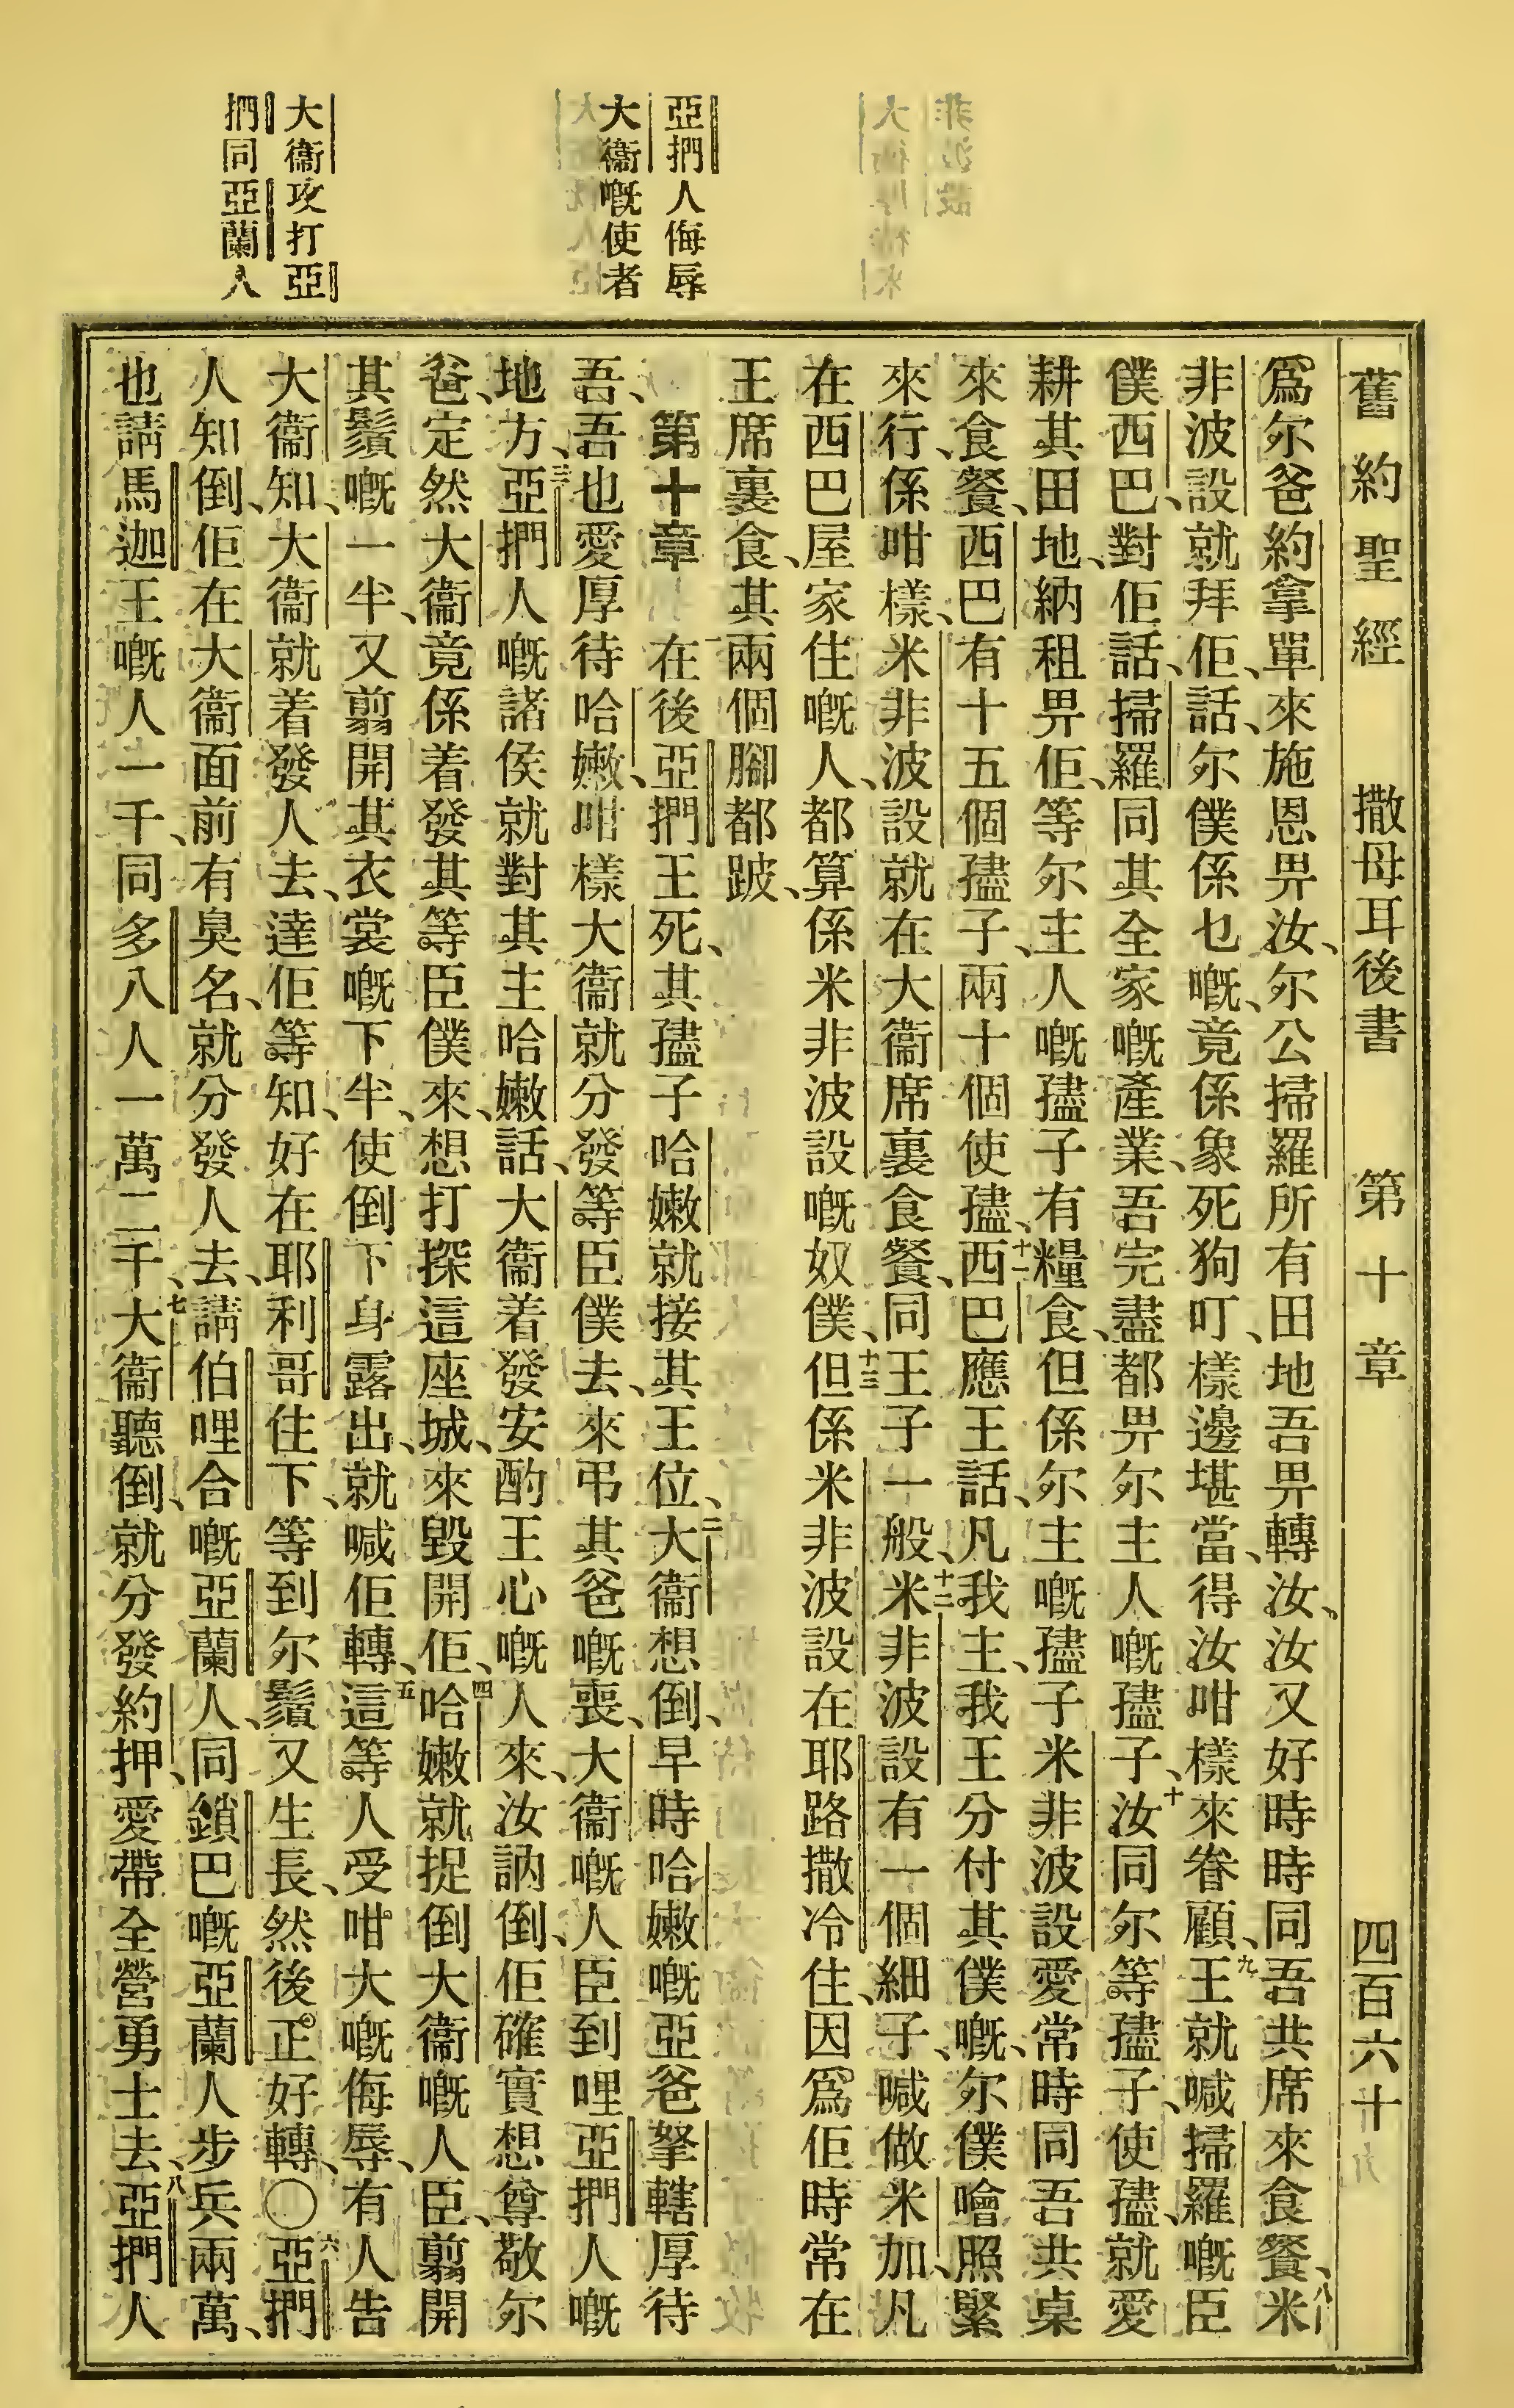 舊約聖經 撒母耳後書 第十章 四百六十
爲尔爸約拿單來施恩畀汝、尔公掃羅所有田地吾畀轉汝、汝又好時時同吾共席來食餐、八米
非波設就拜佢、話、尔僕係乜嘅、竟係象死狗叮、樣邊堪當、得汝咁樣來眷顧、九王就喊掃羅嘅臣
僕西巴、對佢話、掃羅同其全家嘅產業、吾完盡都畀尔主人嘅孻子、十汝同尔等孻子、使孻、就愛
耕其田地、納租畀佢、等尔主人嘅孻子有糧食、但係尔主嘅孻子米非波設愛常時同吾共桌
來食餐、西巴有十五個孻子、兩十個使孻、十一西巴應王話、凡我主、我王分付其僕嘅、尔僕噲照緊
來行、係咁樣、米非波設就在大衞席裏食餐、同王子一般、十二米非波設有一個細子、喊做米加、凡
在西巴屋家住嘅人、都算係米非波設嘅奴僕、十三但係米非波設在耶路撒冷住、因爲佢時常在
王席裏食、其兩個腳都跛、
第十章 一在後亞捫王死、其孻子哈嫩就接其王位、二大衞想倒、早時哈嫩嘅亞爸拏轄厚待
吾、吾也愛厚待哈嫩、咁樣大衞就分發等臣僕去、來弔其爸嘅喪、大衞嘅人臣到哩亞捫人嘅
地方、三亞捫人嘅諸侯就對其主哈嫩話、大衞着發安酌王心嘅人來、汝訥倒、佢確實想尊敬尔
爸、定然大衞竟係着發其等臣僕來、想打探這座城、來毀開佢、四哈嫩就捉倒大衞嘅人臣、翦開
其鬚嘅一半、又翦開其衣裳嘅下半、使倒下身露出、就喊佢轉、五這等人受咁大嘅侮辱、有人告
大衞知、大衞就着發人去、達佢等知、好在耶利哥住下、等到尔鬚又生長、然後正好轉、〇六亞捫
人知倒、佢在大衞面前有臭名、就分發人去、請伯哩合嘅亞蘭人、同鎖巴嘅亞蘭人步兵兩萬、
也請馬迦王嘅人一千、同多八人一萬二千、七大衞聽倒、就分發約押、愛帶全營勇士去、八亞捫人
亞捫人侮辱
大衞嘅使者
大衞攻打亞
捫同亞蘭人